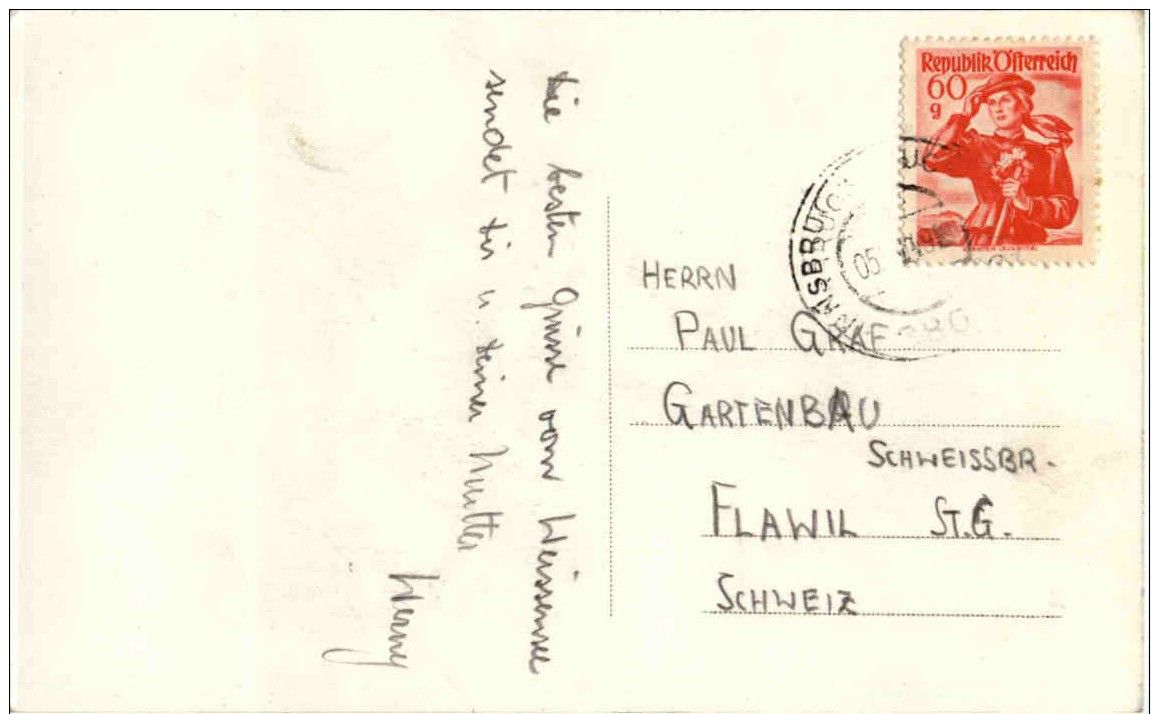 Die besten Grüsse vom Weissensee
sendet dir u. deiner Mutter
Werny
Republik Österreich
60
g
INNSBRUCK
05
HERRN
PAUL GRAF
GARTENBAU
SCHWEISSBR.
FLAWIL ST.G.
SCHWEIZ